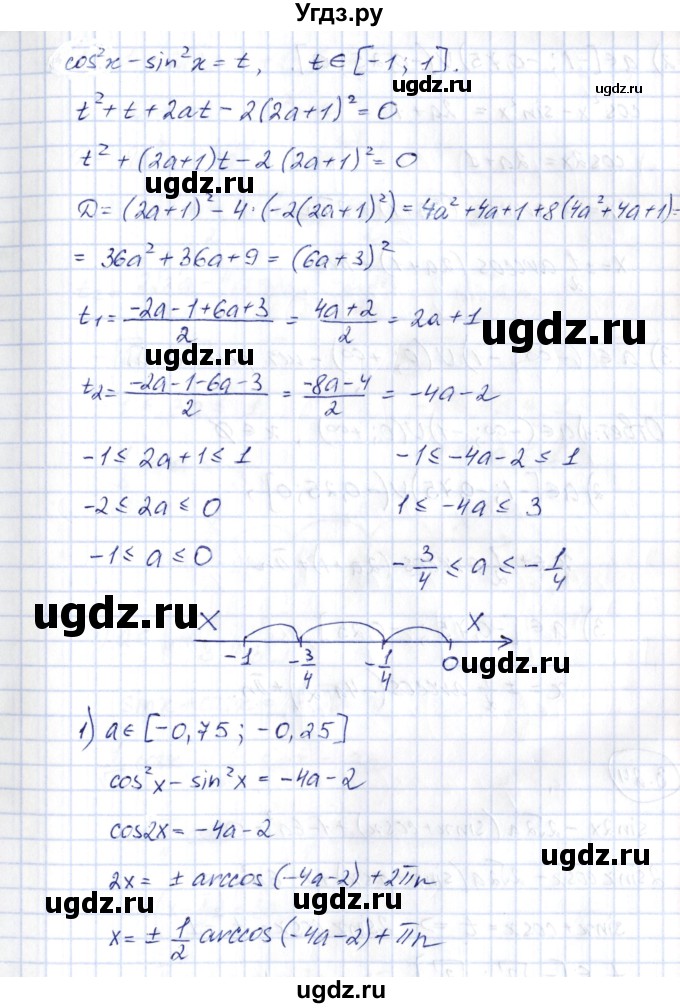 Угдз.ру
cos²x - sin²x = t,   t ∈ [-1; 1].
t² + t + 2at - 2(2a+1)² = 0
t² + (2a+1)t - 2(2a+1)² = 0
ugdz.ru
D = (2a+1)² - 4·(-2(2a+1)²) = 4a² + 4a + 1 + 8(4a² + 4a + 1) =
= 36a² + 36a + 9 = (6a+3)²
ugdz.ru
t₁ = (-2a-1+6a+3)/2 = (4a+2)/2 = 2a+1
ugdz.ru ugdz.ru
t₂ = (-2a-1-6a-3)/2 = (-8a-4)/2 = -4a-2
-1 ≤ 2a+1 ≤ 1   -1 ≤ -4a-2 ≤ 1
-2 ≤ 2a ≤ 0   1 ≤ -4a ≤ 3
-1 ≤ a ≤ 0   -3/4 ≤ a ≤ -1/4
ugdz.ru
X X
-1   -3/4   -1/4   0
ugdz.ru ugdz.ru
1) a ∈ [-0,75; -0,25]
cos²x - sin²x = -4a-2
cos2x = -4a-2
ugdz.ru
2x = ± arccos(-4a-2) + 2πn
ugdz.ru ugdz.ru
x = ± 1/2 arccos(-4a-2) + πn
ugdz.ru